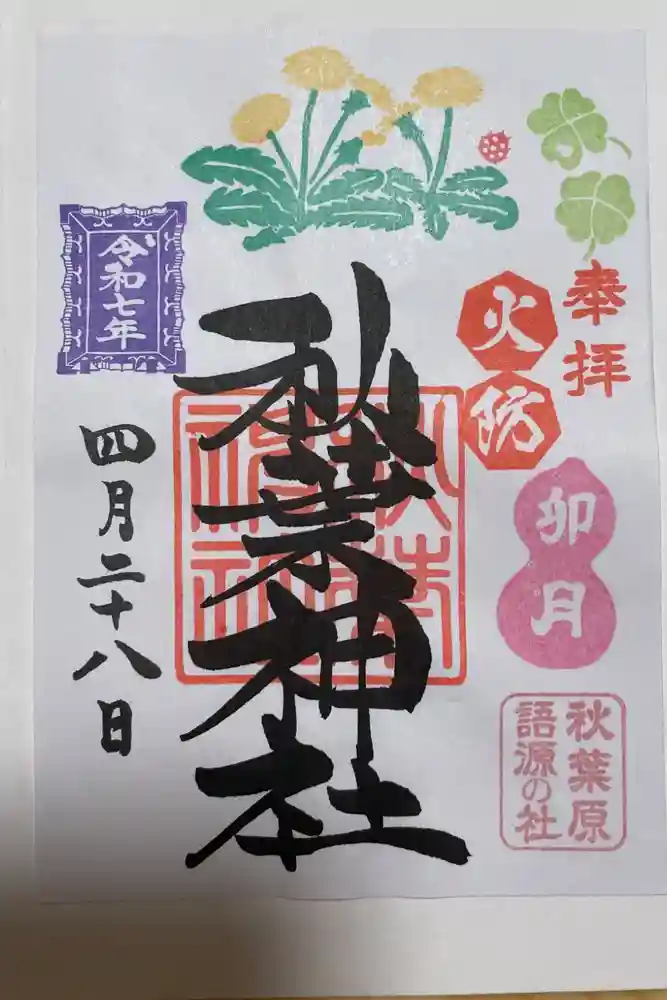 奉拝
火防
卯月
秋葉原
語源の社
秋葉神社
令和七年
四月二十八日